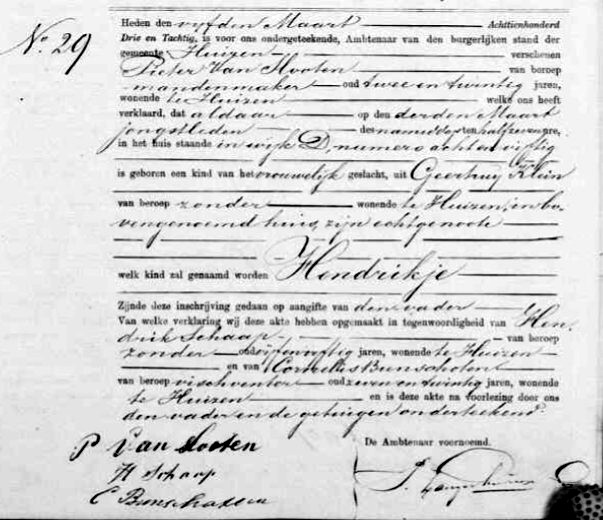 Nº 29
Heden den vyfden Maart Achttienhonderd
Drie en Tachtig, is voor ons ondergeteekende, Ambtenaar van den burgerlijken stand der
gemeente Huizen verschenen
Pieter Van Slooten van beroep
mandenmaker oud twee en twintig jaren,
wonende te Huizen welke ons heeft
verklaard, dat aldaar op den derden Maart
jongstleden des namiddags ten half zeven ure,
in het huis staande in wijk D, numero acht en vyftig
is geboren een kind van het vrouwelijk geslacht, uit Geertruy Klein
van beroep zonder wonende te Huizen, in bo-
vengenoemd huis, zijn echtgenoote
welk kind zal genaamd worden Hendrikje
Zijnde deze inschrijving gedaan op aangifte van den vader
Van welke verklaring wij deze akte hebben opgemaakt in tegenwoordigheid van Hen-
drik Schaap, van beroep
zonder oud vyfenvyftig jaren, wonende te Huizen
en van Cornelius Bunschoten
van beroep vischventer oud zeven en twintig jaren, wonende
te Huizen en is deze akte na voorlezing door ons
den vader en de getuigen onderteekend
De Ambtenaar voornoemd.
P Van Slooten
H Schaap
C Bunschoten